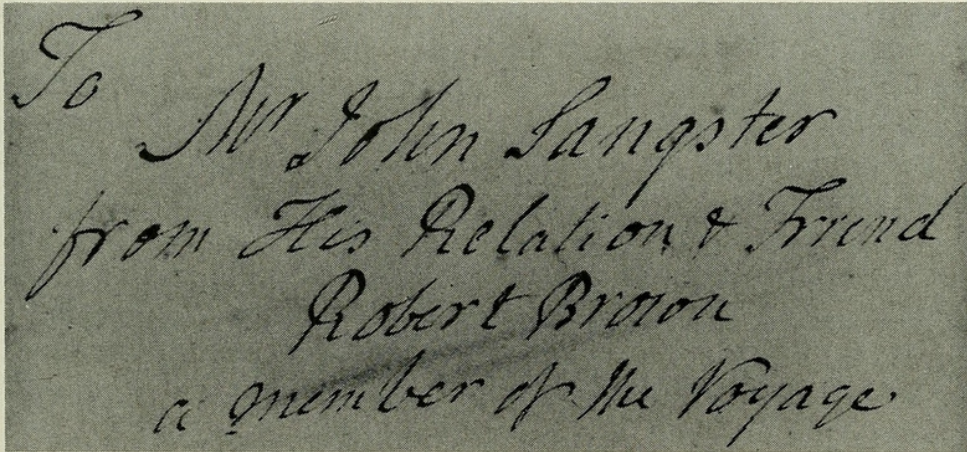 To
Mr John Sangster
from His Relation & Friend
Robert Brown
a member of the Voyage